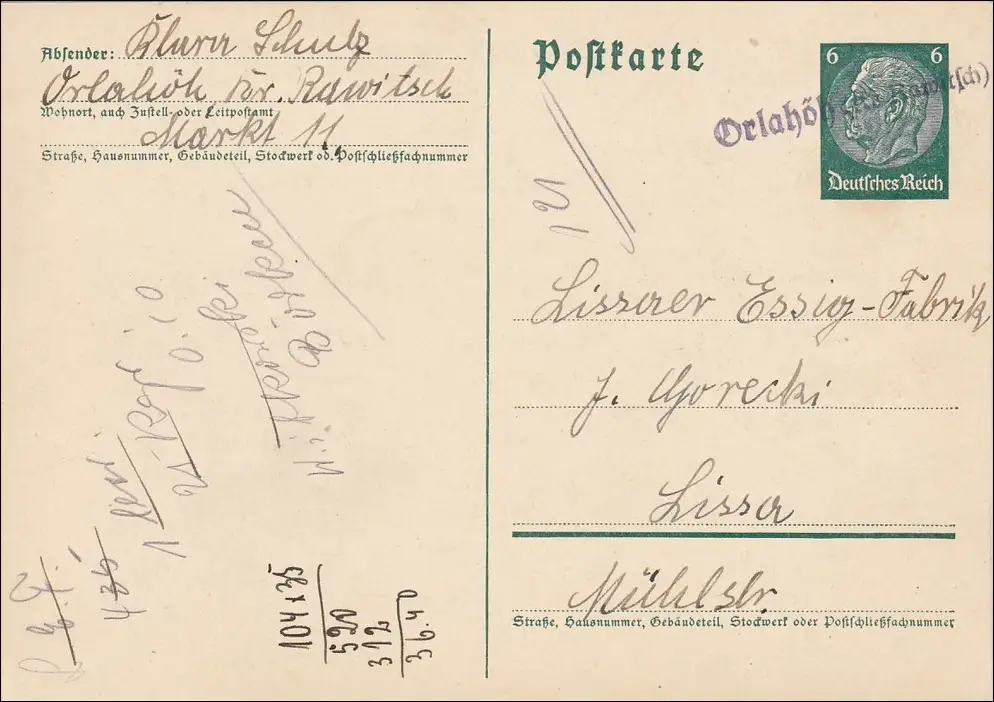 Absender: Klara Schulz
Orlahöh, Kr. Rawitsch
Wohnort, auch Zustell- oder Leitpostamt
Markt 11.
Straße, Hausnummer, Gebäudeteil, Stockwerk od. Postschließfachnummer
Postkarte
6 6
Deutsches Reich
Orlahöh
121
Lissaer Essig-Fabrik
J. Gorecki
Lissa
Mühlstr.
Straße, Hausnummer, Gebäudeteil, Stockwerk oder Postschließfachnummer
104 x 35
520
312
36.40